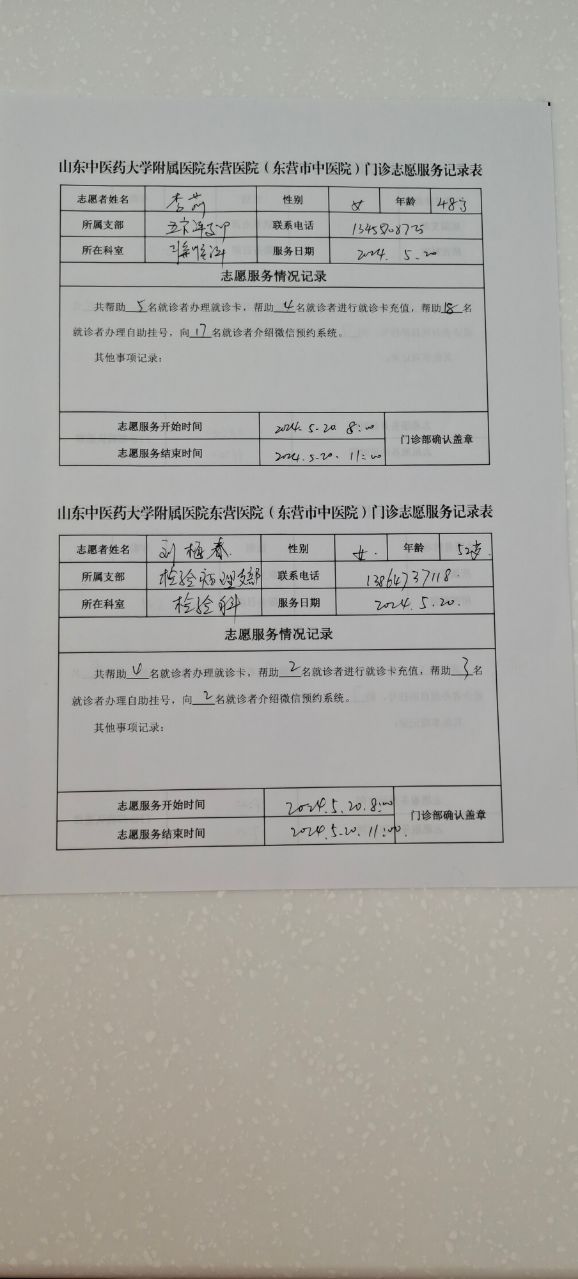 山东中医药大学附属医院东营医院（东营市中医院）门诊志愿服务记录表
志愿者姓名 李莉 性别 女 年龄 48岁
所属支部 联系电话
所在科室 服务日期 2024. 5.20
志愿服务情况记录
共帮助 5 名就诊者办理就诊卡，帮助 4 名就诊者进行就诊卡充值，帮助 18 名
就诊者办理自助挂号，向 17 名就诊者介绍微信预约系统。
其他事项记录：
志愿服务开始时间 2024.5.20. 8:00
门诊部确认盖章
志愿服务结束时间 2024.5.20. 11:00
山东中医药大学附属医院东营医院（东营市中医院）门诊志愿服务记录表
志愿者姓名 刘梅春 性别 女. 年龄 52岁
所属支部 检验病理支部 联系电话 13864737118.
所在科室 检验科 服务日期 2024.5.20.
志愿服务情况记录
共帮助 4 名就诊者办理就诊卡，帮助 2 名就诊者进行就诊卡充值，帮助 3 名
就诊者办理自助挂号，向 2 名就诊者介绍微信预约系统。
其他事项记录：
志愿服务开始时间 2024.5.20.8:00
门诊部确认盖章
志愿服务结束时间 2024.5.20. 11:00.